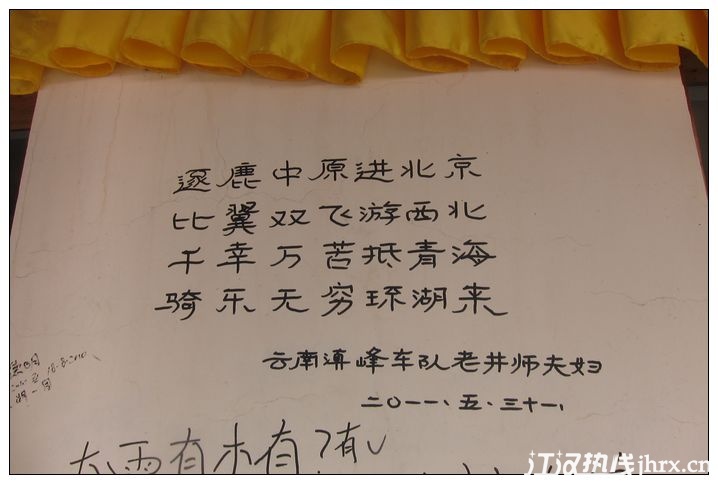 逐鹿中原进北京
比翼双飞游西北
千幸万苦抵青海
骑乐无穷琼湖来
云南滇峰车队老井师夫妇
二〇一一.五.三十一.
18.8.2010
有木有
江汉热线jhrx.cn